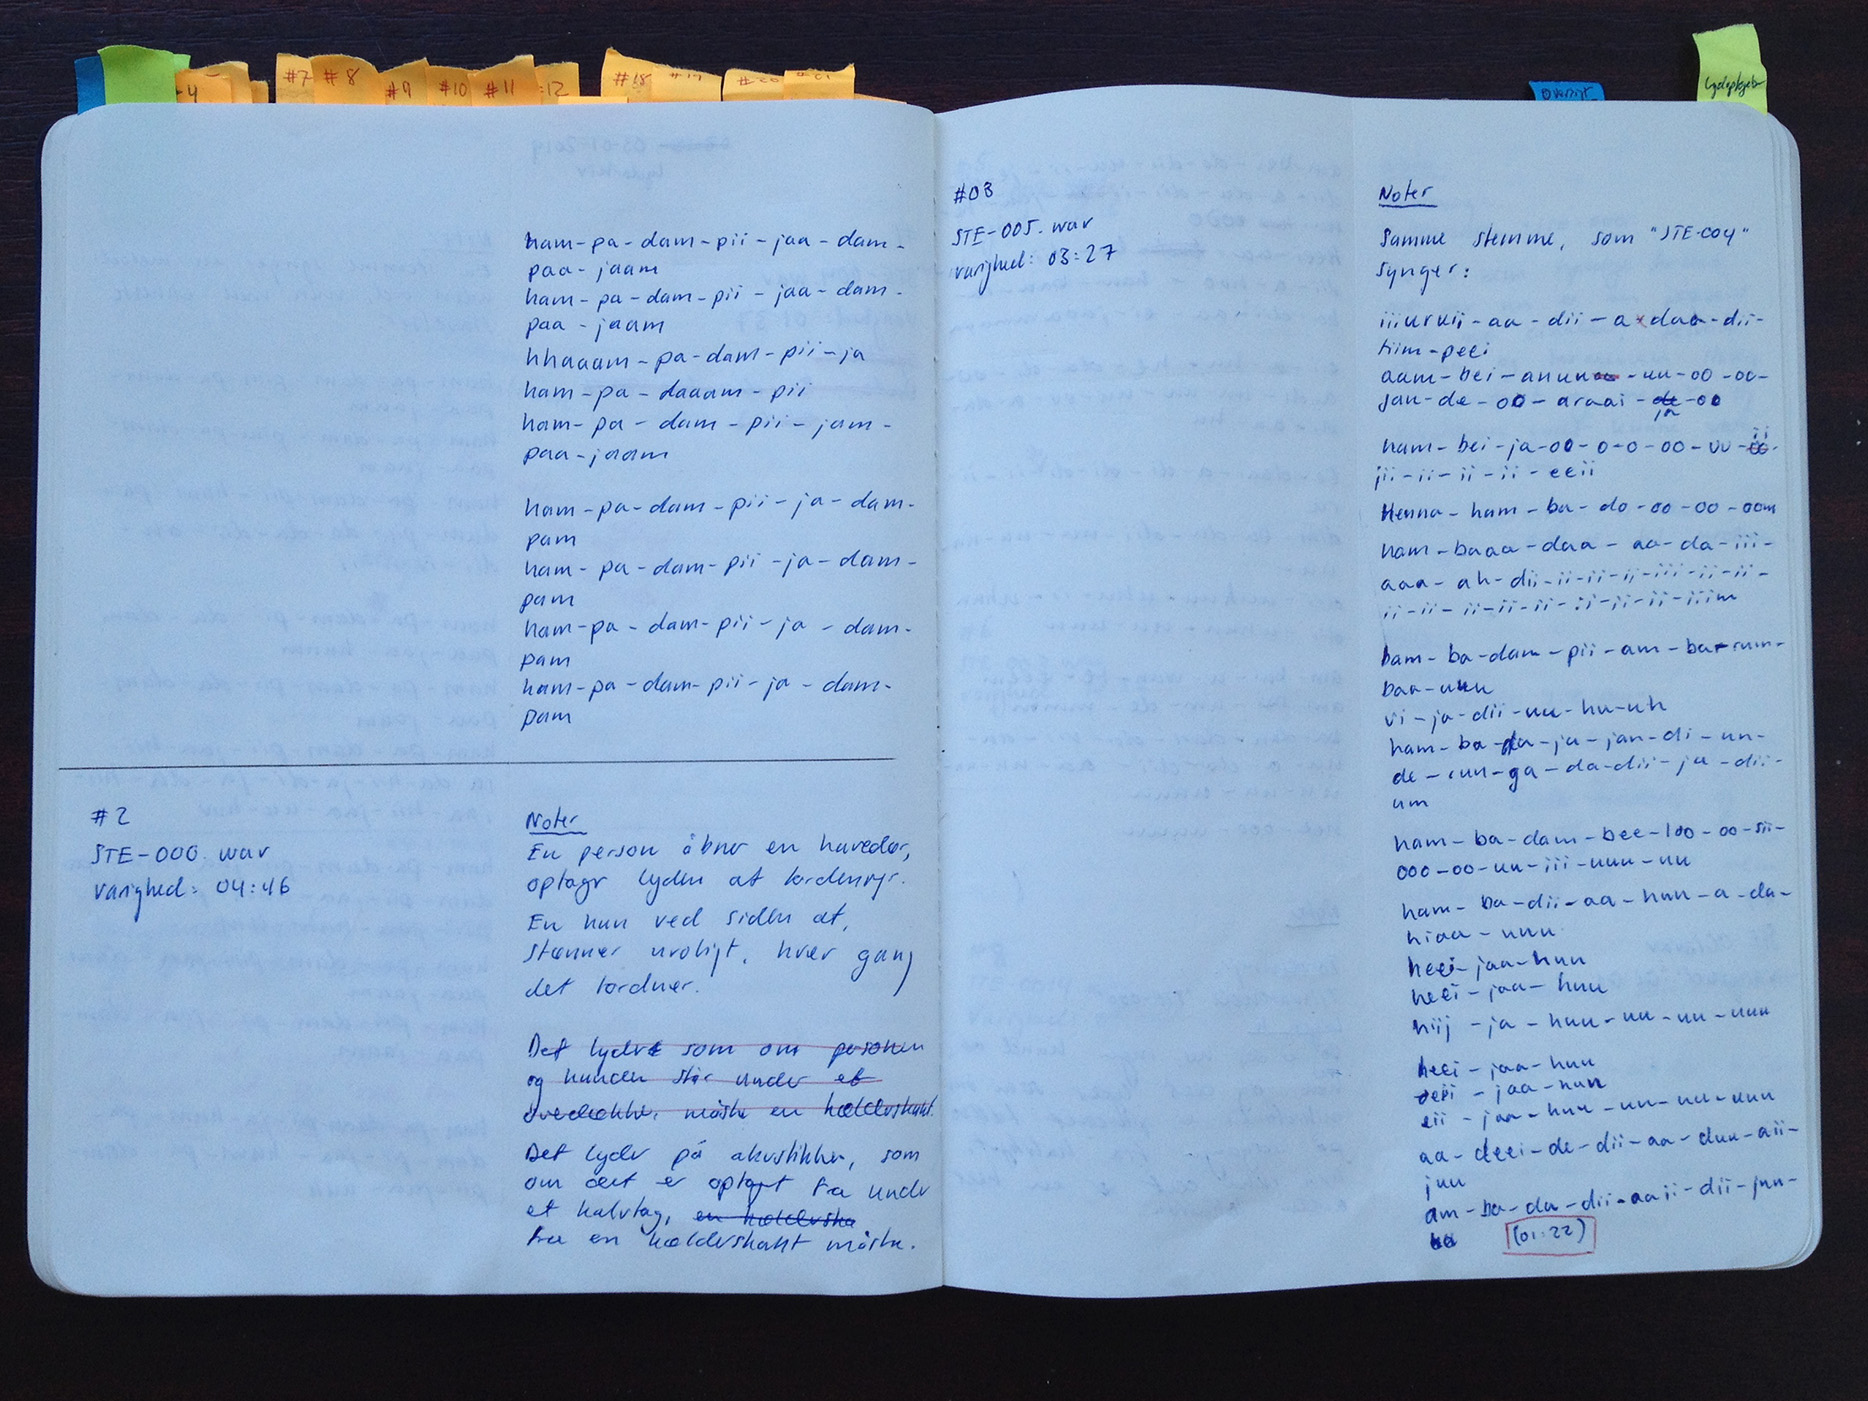 #7
#8
#9
#10
#11
12
#18
ham-pa-dam-pii-jaa-dam-
paa-jaam
ham-pa-dam-pii-jaa-dam-
paa-jaam
hhaaam-pa-dam-pii-ja
ham-pa-daaam-pii
ham-pa-dam-pii-jam-
paa-jaam
ham-pa-dam-pii-ja-dam-
pam
ham-pa-dam-pii-ja-dam-
pam
ham-pa-dam-pii-ja-dam-
pam
ham-pa-dam-pii-ja-dam-
pam
#2
STE-000.wav
varighed: 04:46
Noter
En person åbner en havedør,
optager lyden af tordenvejr.
En hun ved siden af,
stønner uroligt, hver gang
det tordner.
Det lyder som om personen
og hunden står under et
måske en kælderskakt.
Det lyder på akustikken, som
om det er optaget fra under
et halvtag, en kælderska
fra en kælderskakt måske.
#03
STE-005.wav
varighed: 03:27
Noter
Samme stemme, som "STE-004"
synger:
-aa-dii-a-daa-dii-
tiim-peei
aam-bei-anunaa-uu-oo-oo-
jan-de-oo-araai-de-oo
ja
ham-bei-ja-oo-o-o-oo-uu-
ii
jii-ii-ii-ii-eeii
Henna-ham-ba-do-oo-oo-oom
ham-baaa-daa-aa-da-iii-
aaa-ah-dii-ii-ii-ii-iii-ii-ii-
ii-ii-ii-ii-ii-ii-ii-ii-iiim
bam-ba-dam-pii-am-ba-ram-
baa-uuu
vi-ja-dii-uu-hu-uh
ham-ba-da-ja-jan-di-un-
de-ga-da-dii-ja-dii-
um
ham-ba-dam-bee-loo-oo-sii-
ooo-oo-uu-iii-uuu-uu
ham-ba-dii-aa-huu-a-da-
hiaa-uuu
heei-jaa-huu
heei-jaa-huu
hiij-ja-huu-uu-uu-uuu
heei-jaa-huu
jaa-huu
eii-jaa-huu-uu-uu-uuu
aa-deei-de-dii-aa-duu-aii-
juu
am-ba-da-dii-aaii-dii-juu-
(01:22)